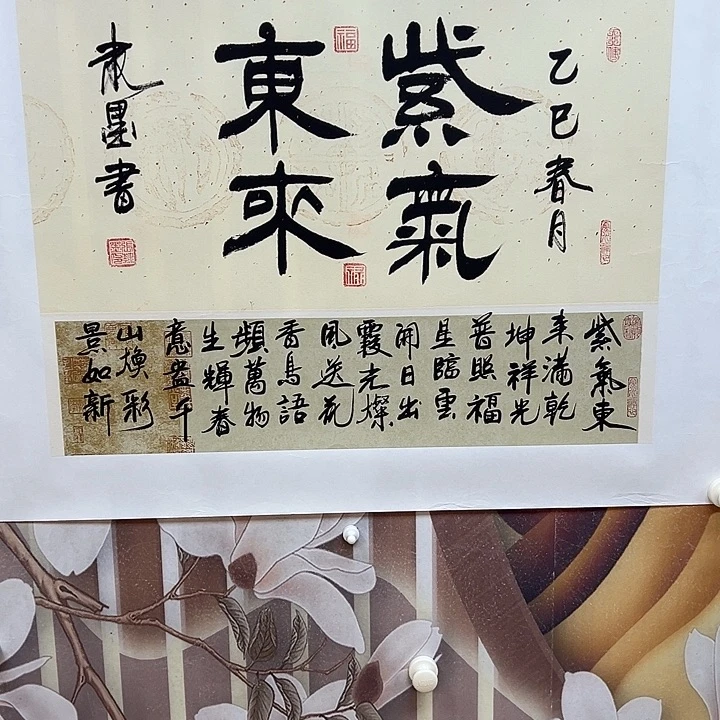 乙巳春月
紫氣
東來
墨書
福
紫氣東
来滿乾
坤祥光
普照福
星臨雲
開日出
霞光燦
風送花
香鳥語
頻萬物
生輝春
意盎千
山煥彩
景如新